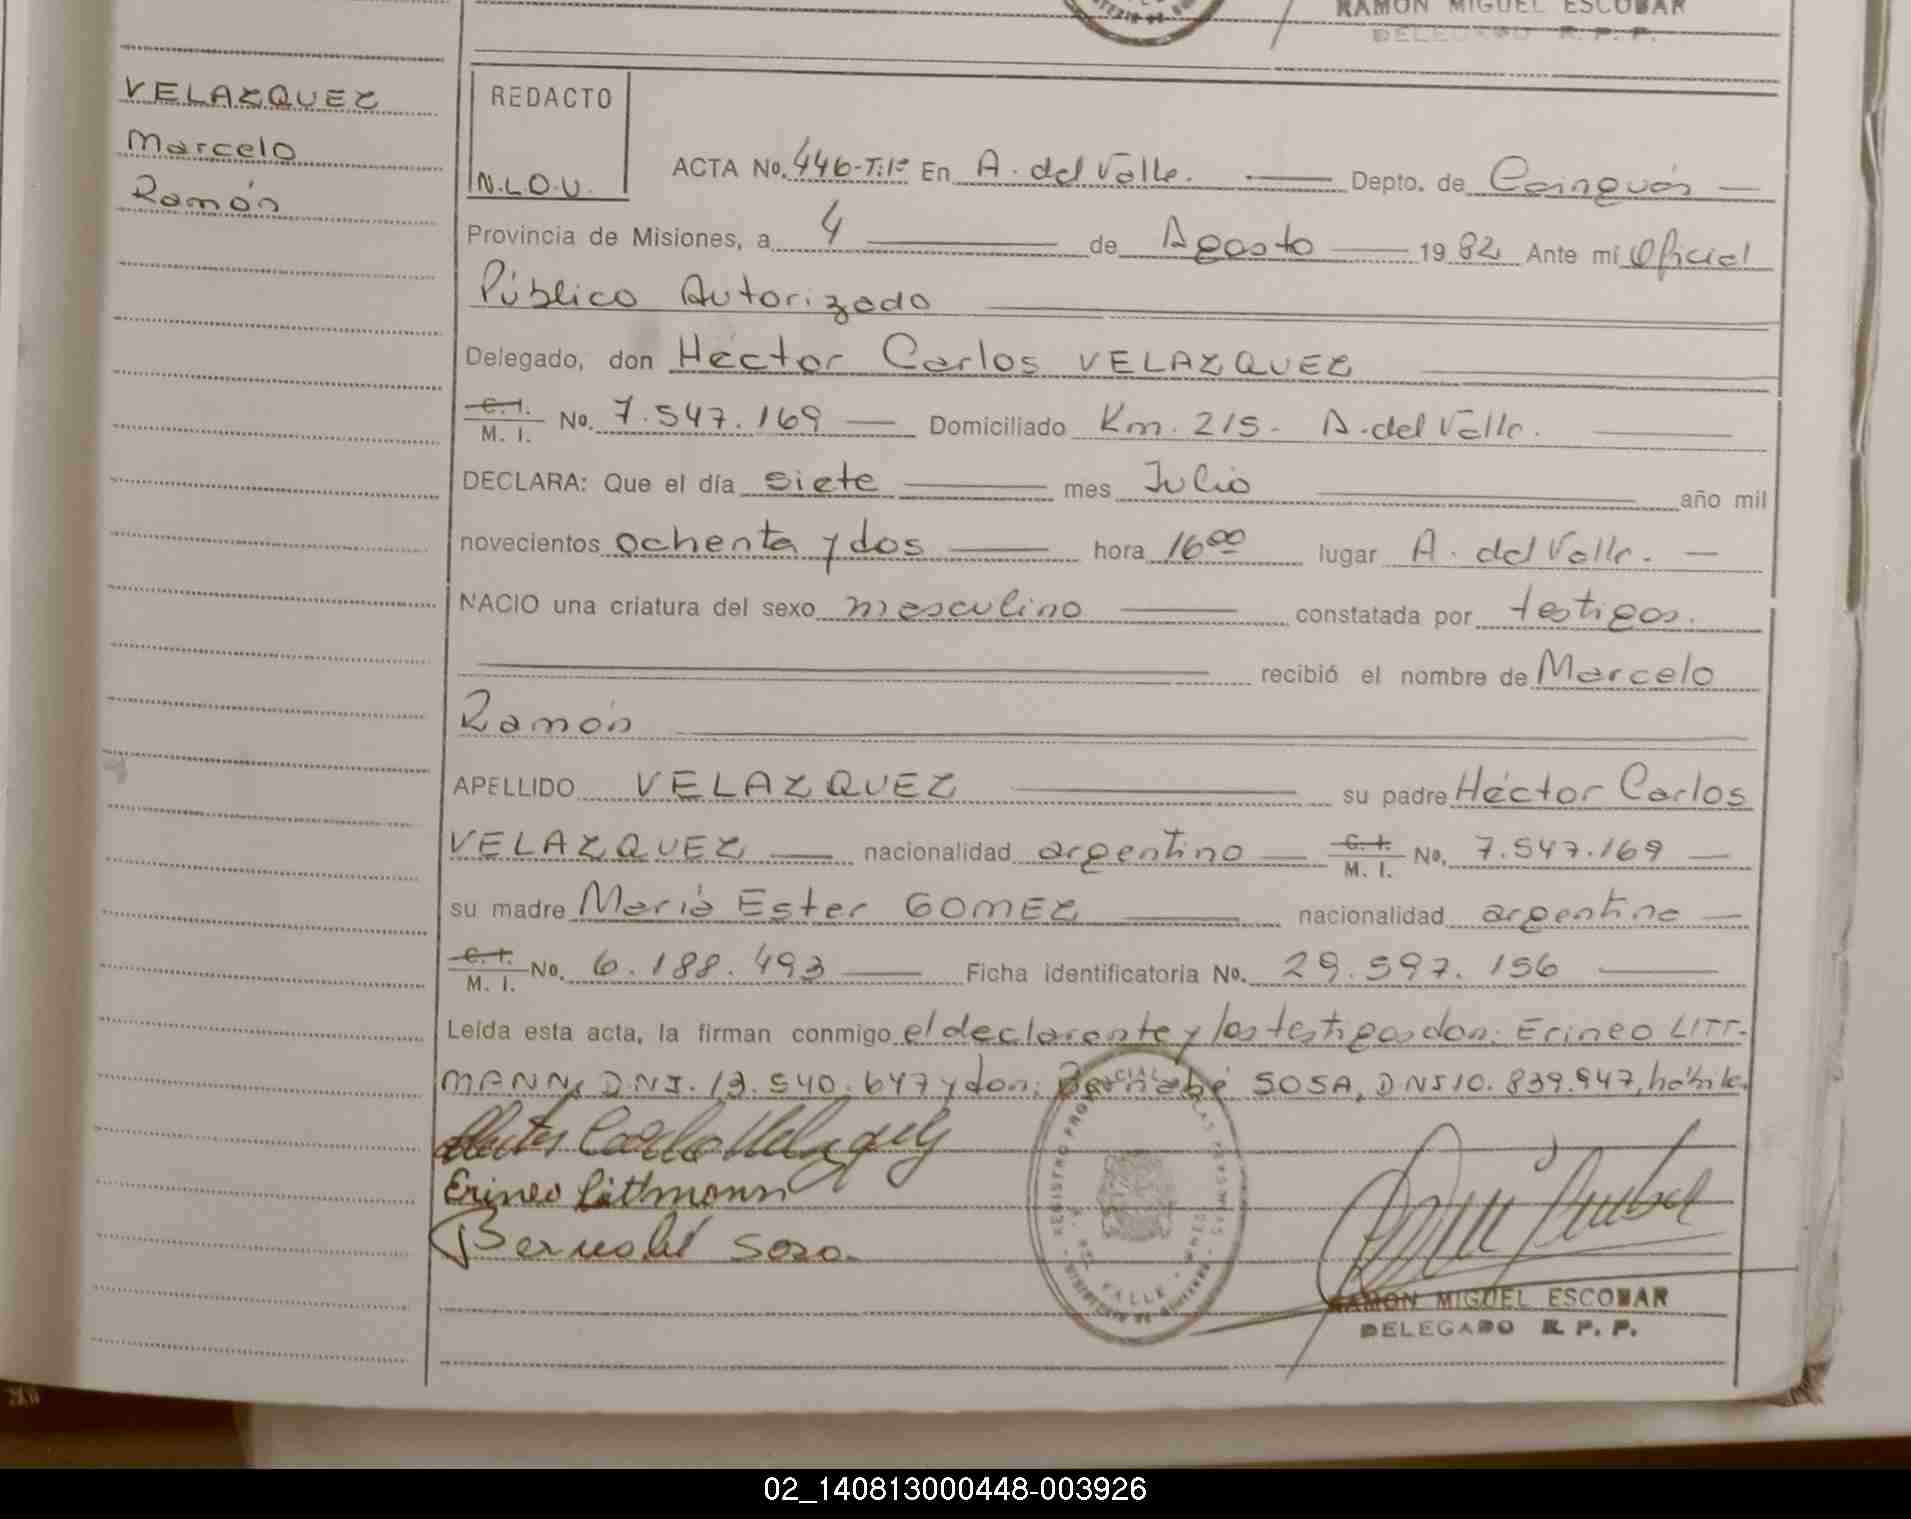 RAMON MIGUEL ESCOBAR
DELEGADO R. P. P.
VELAZQUEZ
Marcelo
Ramón
REDACTO
N.L.O.V.
ACTA No. 446-T:1º En A. del Valle. Depto. de Cainguás
Provincia de Misiones, a 4 de Agosto 1982 Ante mí Oficial
Público Autorizado
Delegado, don Héctor Carlos VELAZQUEZ
C. I.
M. I. No. 7.547.169 Domiciliado Km. 215. A. del Valle.
DECLARA: Que el día siete mes Julio año mil
novecientos ochenta y dos hora 16ºº lugar A. del Valle.
NACIO una criatura del sexo masculino constatada por testigos.
recibió el nombre de Marcelo
Ramón
APELLIDO VELAZQUEZ su padre Héctor Carlos
VELAZQUEZ nacionalidad argentino C. I. M. I. No. 7.547.169
su madre María Ester GOMEZ nacionalidad argentina
C. I. M. I. No. 6.188.493 Ficha identificatoria No. 29.597.156
Leída esta acta, la firman conmigo el declarante y los testigos don: Erineo LITT-
MANN, DNI. 13.540.647 y don: Bernabé SOSA, DNI 10.839.947, hábiles
Erineo Littmann
Bernabé Soza.
REGISTRO PROVINCIAL DE LAS PERSONAS
VALLE - MNES
RAMON MIGUEL ESCOBAR
DELEGADO R. P. P.
02_140813000448-003926